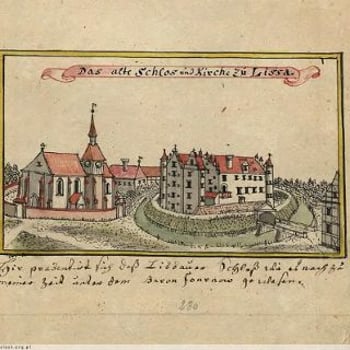 Das alte Schlos und Kirche zu Lissa.
Hir præsentirt sich daß Lissauer Schloß wie es noch zu
meiner Zeit unter dem Baron Hornn
280